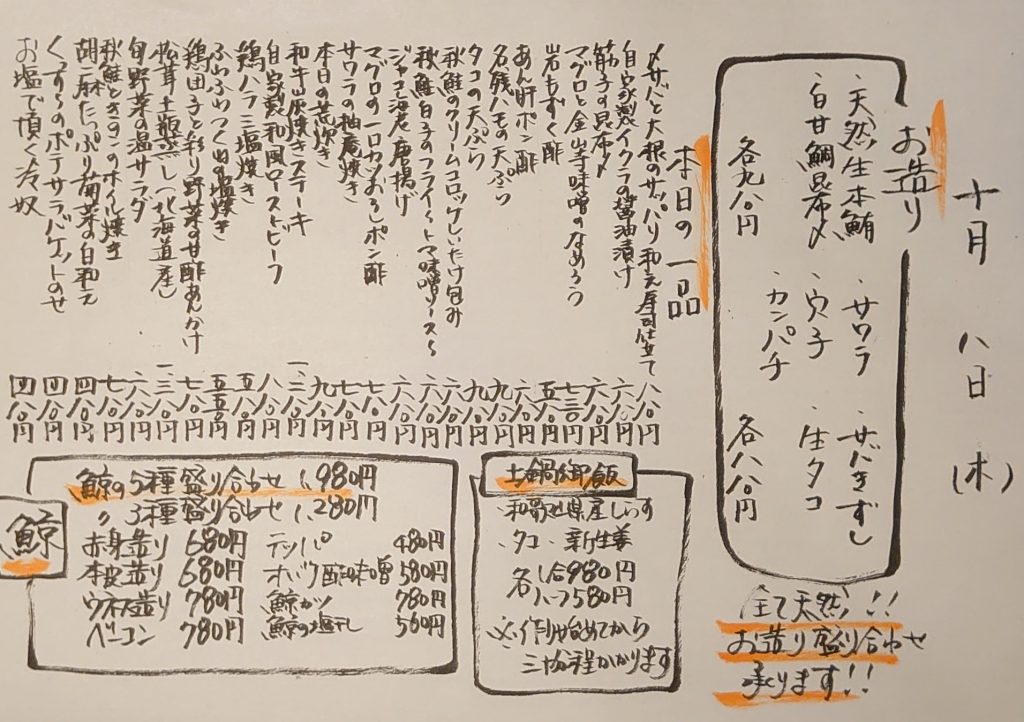 十月 八日 (木)
お造り
・天然生本鮪 ・サワラ ・サバきずし
・白甘鯛昆布〆 ・穴子 ・生タコ
カンパチ
各九八〇円 各八八〇円
全て天然!!
お造り盛り合わせ
承ります!!
本日の一品
〆サバと大根のサッパリ和え寿司仕立て 八八〇円
自家製イクラの醤油漬け 六八〇円
筋子の昆布〆 六八〇円
マグロと金山寺味噌のなめろう 七三〇円
岩もずく酢 五八〇円
あん肝ポン酢 六八〇円
名残ハモの天ぷら 九八〇円
タコの天ぷら 九八〇円
秋鮭のクリームコロッケしいたけ包み 六八〇円
秋鮭白子のフライ〜トマト味噌ソース〜 六八〇円
ジャコ海老唐揚げ 六八〇円
マグロの一口カツおろしポン酢 七八〇円
サワラの柚庵焼き 七八〇円
本日の荒炊き 九八〇円
和牛山灰焼きステーキ 一、三八〇円
自家製和風ローストビーフ 八八〇円
鶏ハラミ塩焼き 五八〇円
ふわふわつくね塩焼き 五五〇円
鶏団子と彩り野菜の甘酢あんかけ 七八〇円
松茸土瓶蒸し(北海道産) 一、三八〇円
旬野菜の温サラダ 六八〇円
秋鮭ときのこのホイル焼き 七八〇円
胡麻たっぷり菊菜の白和え 四八〇円
ポテサラバケットのせ 四八〇円
お塩で頂く冷奴 四八〇円
土鍋御飯
・和歌山県産しらす
・タコ ・新生姜
各 一合980円
ハーフ580円
※作り始めてから
三十分程かかります
鯨
鯨の5種盛り合わせ 1,980円
〃 3種盛り合わせ 1,280円
赤身造り 680円 テッパ 480円
本皮造り 680円 オバケ酢味噌 580円
ウネ造り 780円 鯨カツ 780円
ベーコン 780円 鯨の塩干し 560円